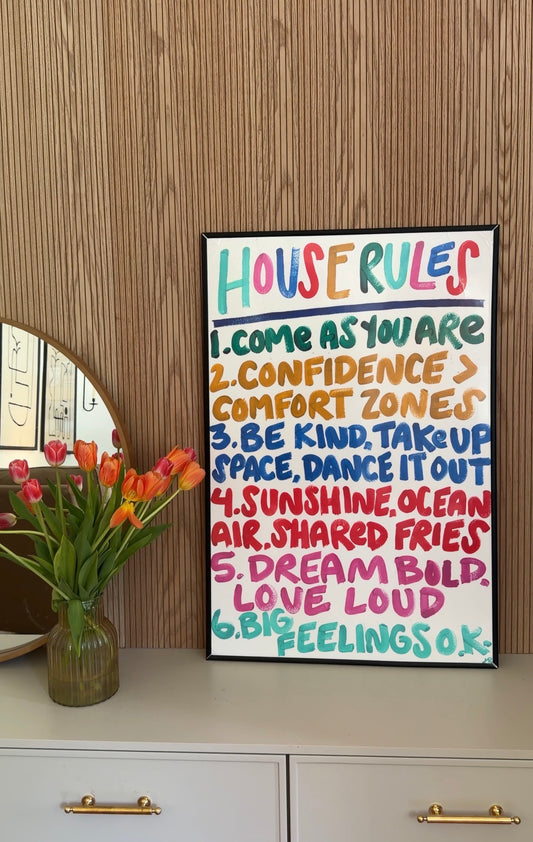 HOUSE RULES
1. COME AS YOU ARE
2. CONFIDENCE >
COMFORT ZONES
3. BE KIND, TAKE UP
SPACE, DANCE IT OUT
4. SUNSHINE, OCEAN
AIR, SHARED FRIES
5. DREAM BOLD,
LOVE LOUD
6. BIG
FEELINGS O.K.